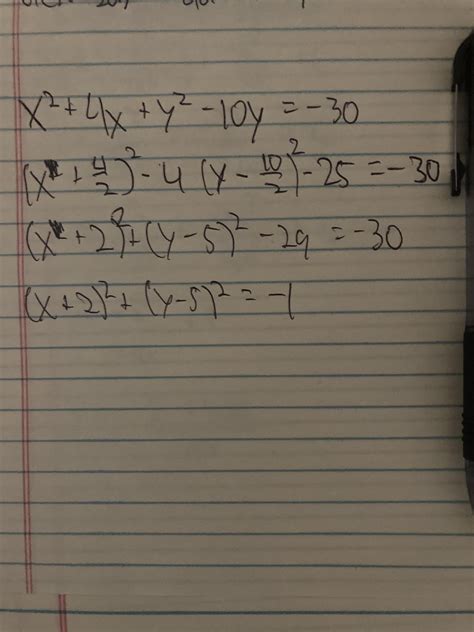 x² + 4x + y² - 10y = -30
(x + 4/2)² - 4 (y - 10/2)² - 25 = -30
(x + 2)² + (y - 5)² - 29 = -30
(x + 2)² + (y - 5)² = -1